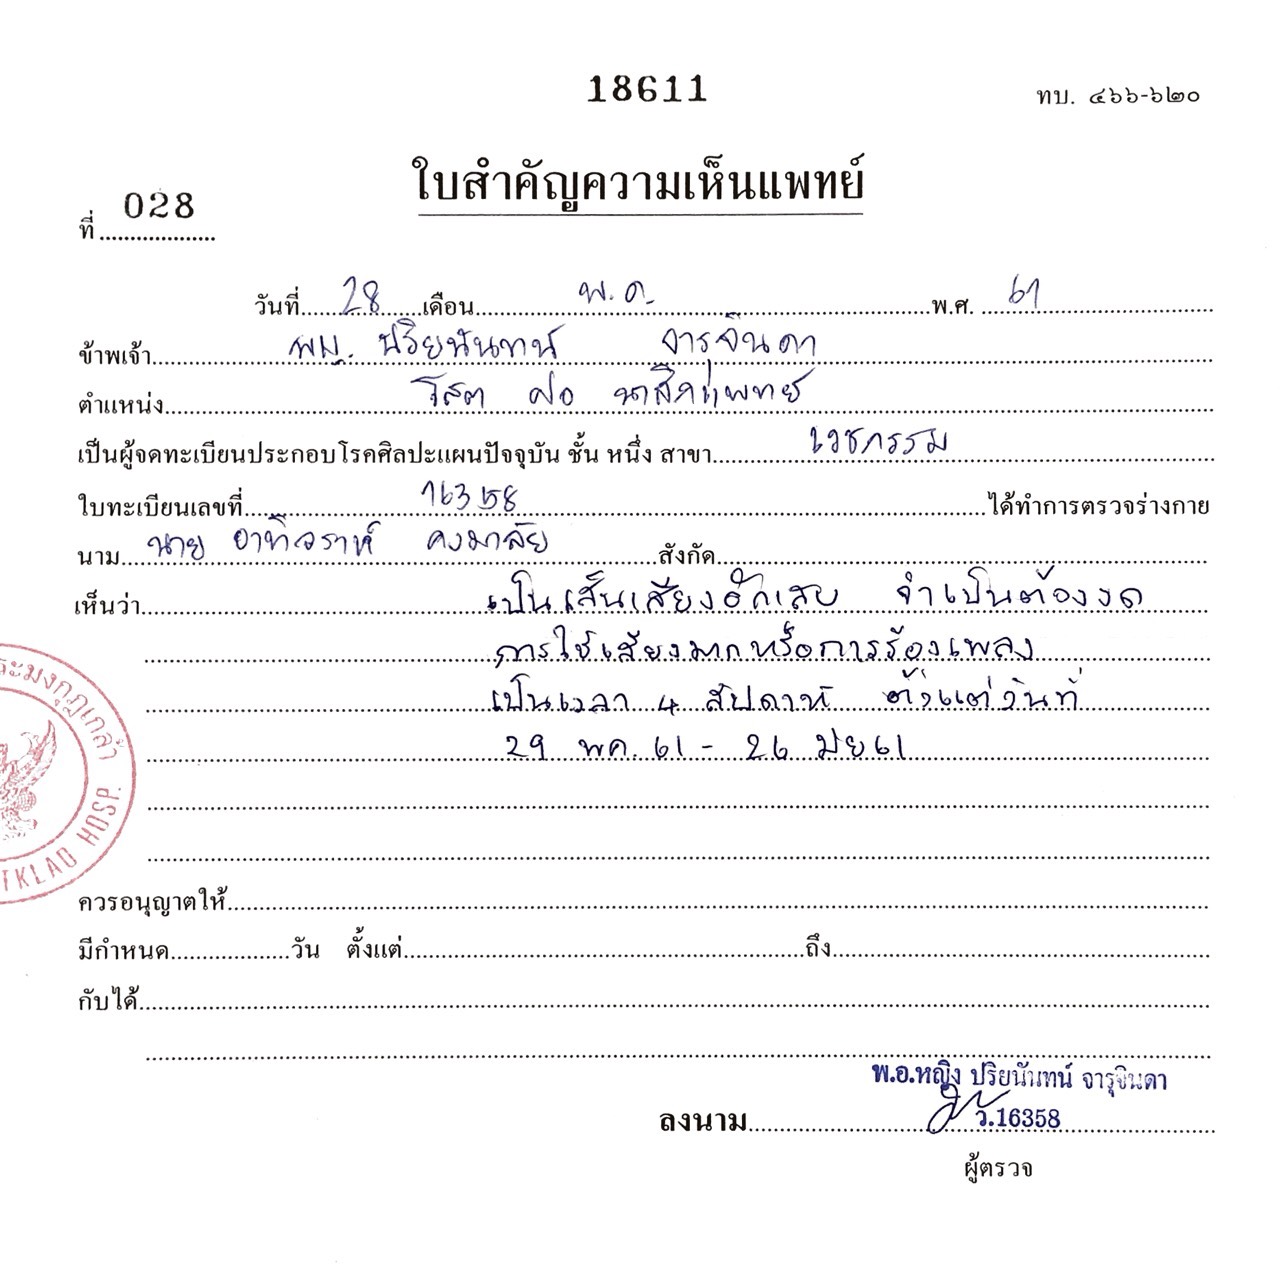 18611
ทบ. ๔๖๖-๖๒๐
ใบสำคัญความเห็นแพทย์
ที่ 028
วันที่ 28 เดือน พ.ค. พ.ศ. 61
ข้าพเจ้า พญ. ปริยนันทน์ จารุจินดา
ตำแหน่ง โสต ศอ นาสิกแพทย์
เป็นผู้จดทะเบียนประกอบโรคศิลปะแผนปัจจุบัน ชั้น หนึ่ง สาขา เวชกรรม
ใบทะเบียนเลขที่ 16358 ได้ทำการตรวจร่างกาย
นาม นาย อาทิวราห์ คงมาลัย สังกัด
เห็นว่า เป็นเส้นเสียงอักเสบ จำเป็นต้องงด
การใช้เสียงมากหรือการร้องเพลง
เป็นเวลา 4 สัปดาห์ ตั้งแต่วันที่
29 พค. 61 - 26 มิย 61
ระมงกุฎเกล้า
TKLAO HOSP.
ควรอนุญาตให้
มีกำหนด วัน ตั้งแต่ ถึง
กับได้
พ.อ.หญิง ปริยนันทน์ จารุจินดา
ลงนาม ว.16358
ผู้ตรวจ